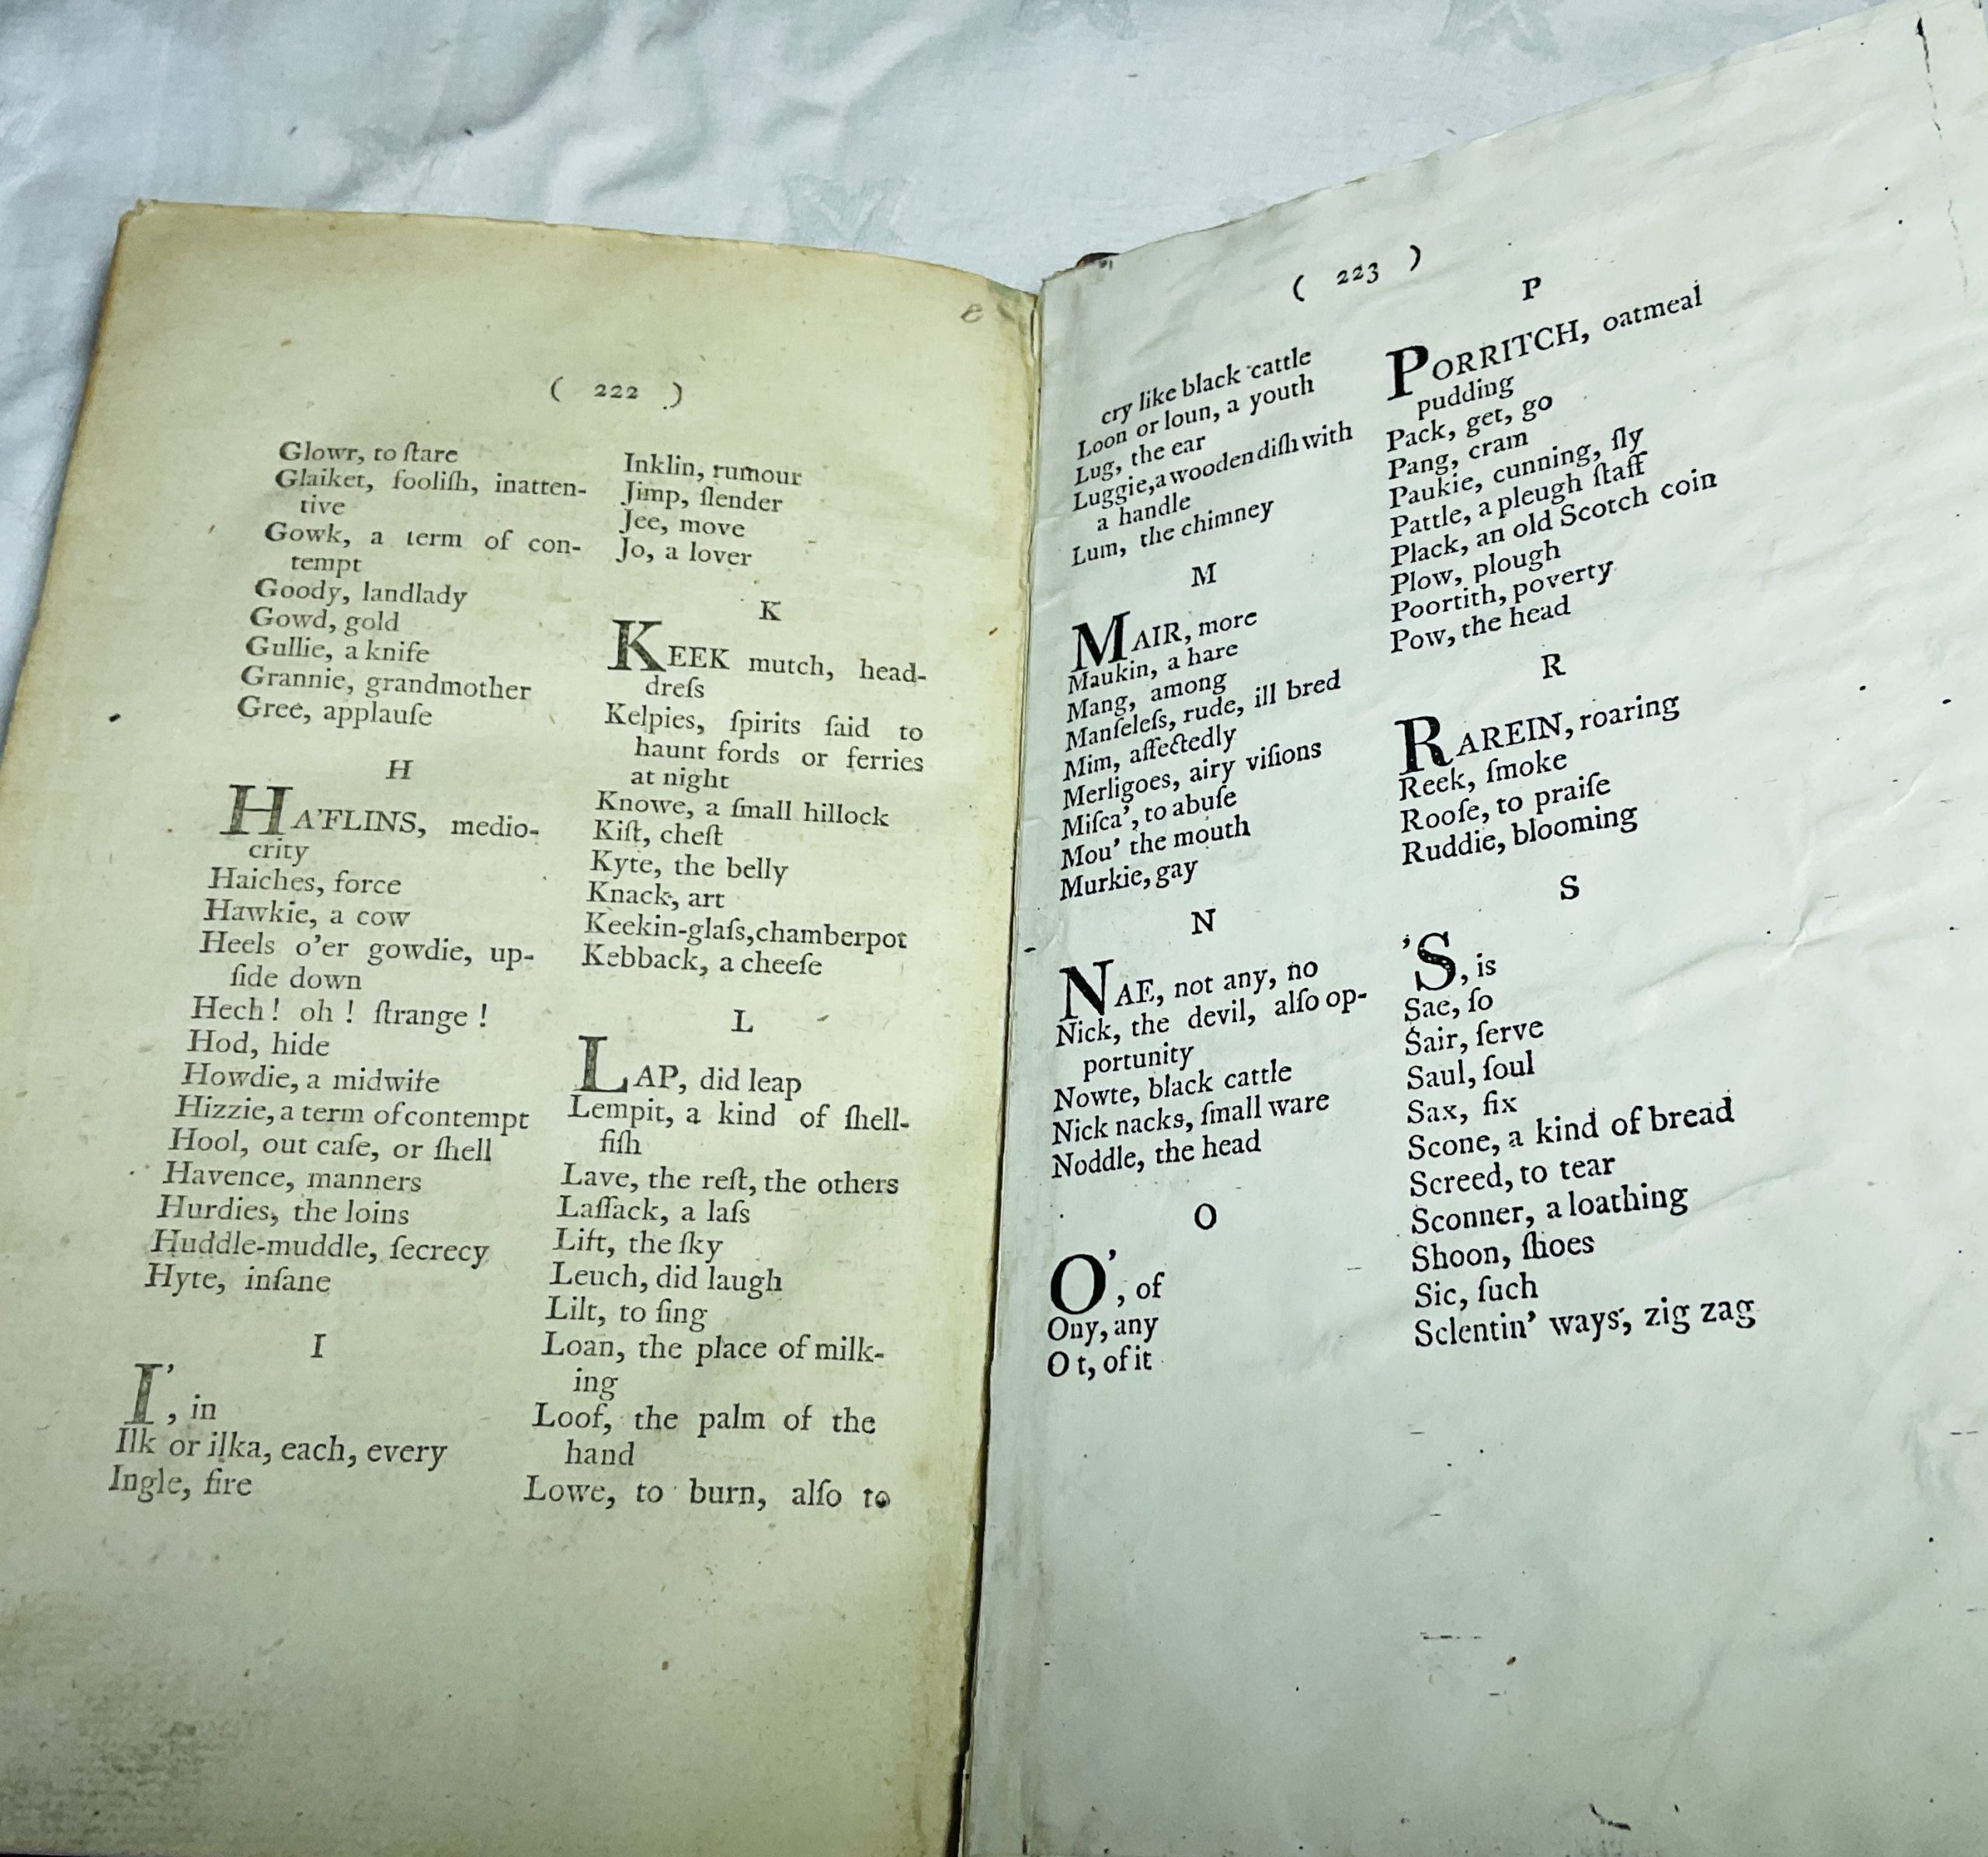 ( 222 )
Glowr, to ſtare
Glaiket, fooliſh, inatten-
tive
Gowk, a term of con-
tempt
Goody, landlady
Gowd, gold
Gullie, a knife
Grannie, grandmother
Gree, applauſe
H
HA'FLINS, medio-
crity
Haiches, force
Hawkie, a cow
Heels o'er gowdie, up-
ſide down
Hech! oh! ſtrange!
Hod, hide
Howdie, a midwife
Hizzie, a term of contempt
Hool, out caſe, or ſhell
Havence, manners
Hurdies, the loins
Huddle-muddle, ſecrecy
Hyte, inſane
I
I', in
Ilk or ilka, each, every
Ingle, fire
Inklin, rumour
Jimp, ſlender
Jee, move
Jo, a lover
K
KEEK mutch, head-
dreſs
Kelpies, ſpirits ſaid to
haunt fords or ferries
at night
Knowe, a ſmall hillock
Kiſt, cheſt
Kyte, the belly
Knack, art
Keekin-glaſs, chamberpot
Kebback, a cheeſe
L
LAP, did leap
Lempit, a kind of ſhell-
fiſh
Lave, the reſt, the others
Laſſack, a laſs
Lift, the ſky
Leuch, did laugh
Lilt, to ſing
Loan, the place of milk-
ing
Loof, the palm of the
hand
Lowe, to burn, alſo to
e
( 223 )
cry like black cattle
Loon or loun, a youth
Lug, the ear
Luggie, a wooden diſh with
a handle
Lum, the chimney
M
MAIR, more
Maukin, a hare
Mang, among
Manſeleſs, rude, ill bred
Mim, affectedly
Merligoes, airy viſions
Miſca', to abuſe
Mou' the mouth
Murkie, gay
N
NAE, not any, no
Nick, the devil, alſo op-
portunity
Nowte, black cattle
Nick nacks, ſmall ware
Noddle, the head
O
O', of
Ony, any
O t, of it
P
PORRITCH, oatmeal
pudding
Pack, get, go
Pang, cram
Paukie, cunning, ſly
Pattle, a pleugh ſtaff
Plack, an old Scotch coin
Plow, plough
Poortith, poverty
Pow, the head
R
RAREIN, roaring
Reek, ſmoke
Rooſe, to praiſe
Ruddie, blooming
S
'S, is
Sae, ſo
Sair, ſerve
Saul, ſoul
Sax, ſix
Scone, a kind of bread
Screed, to tear
Sconner, a loathing
Shoon, ſhoes
Sic, ſuch
Sclentin' ways, zig zag